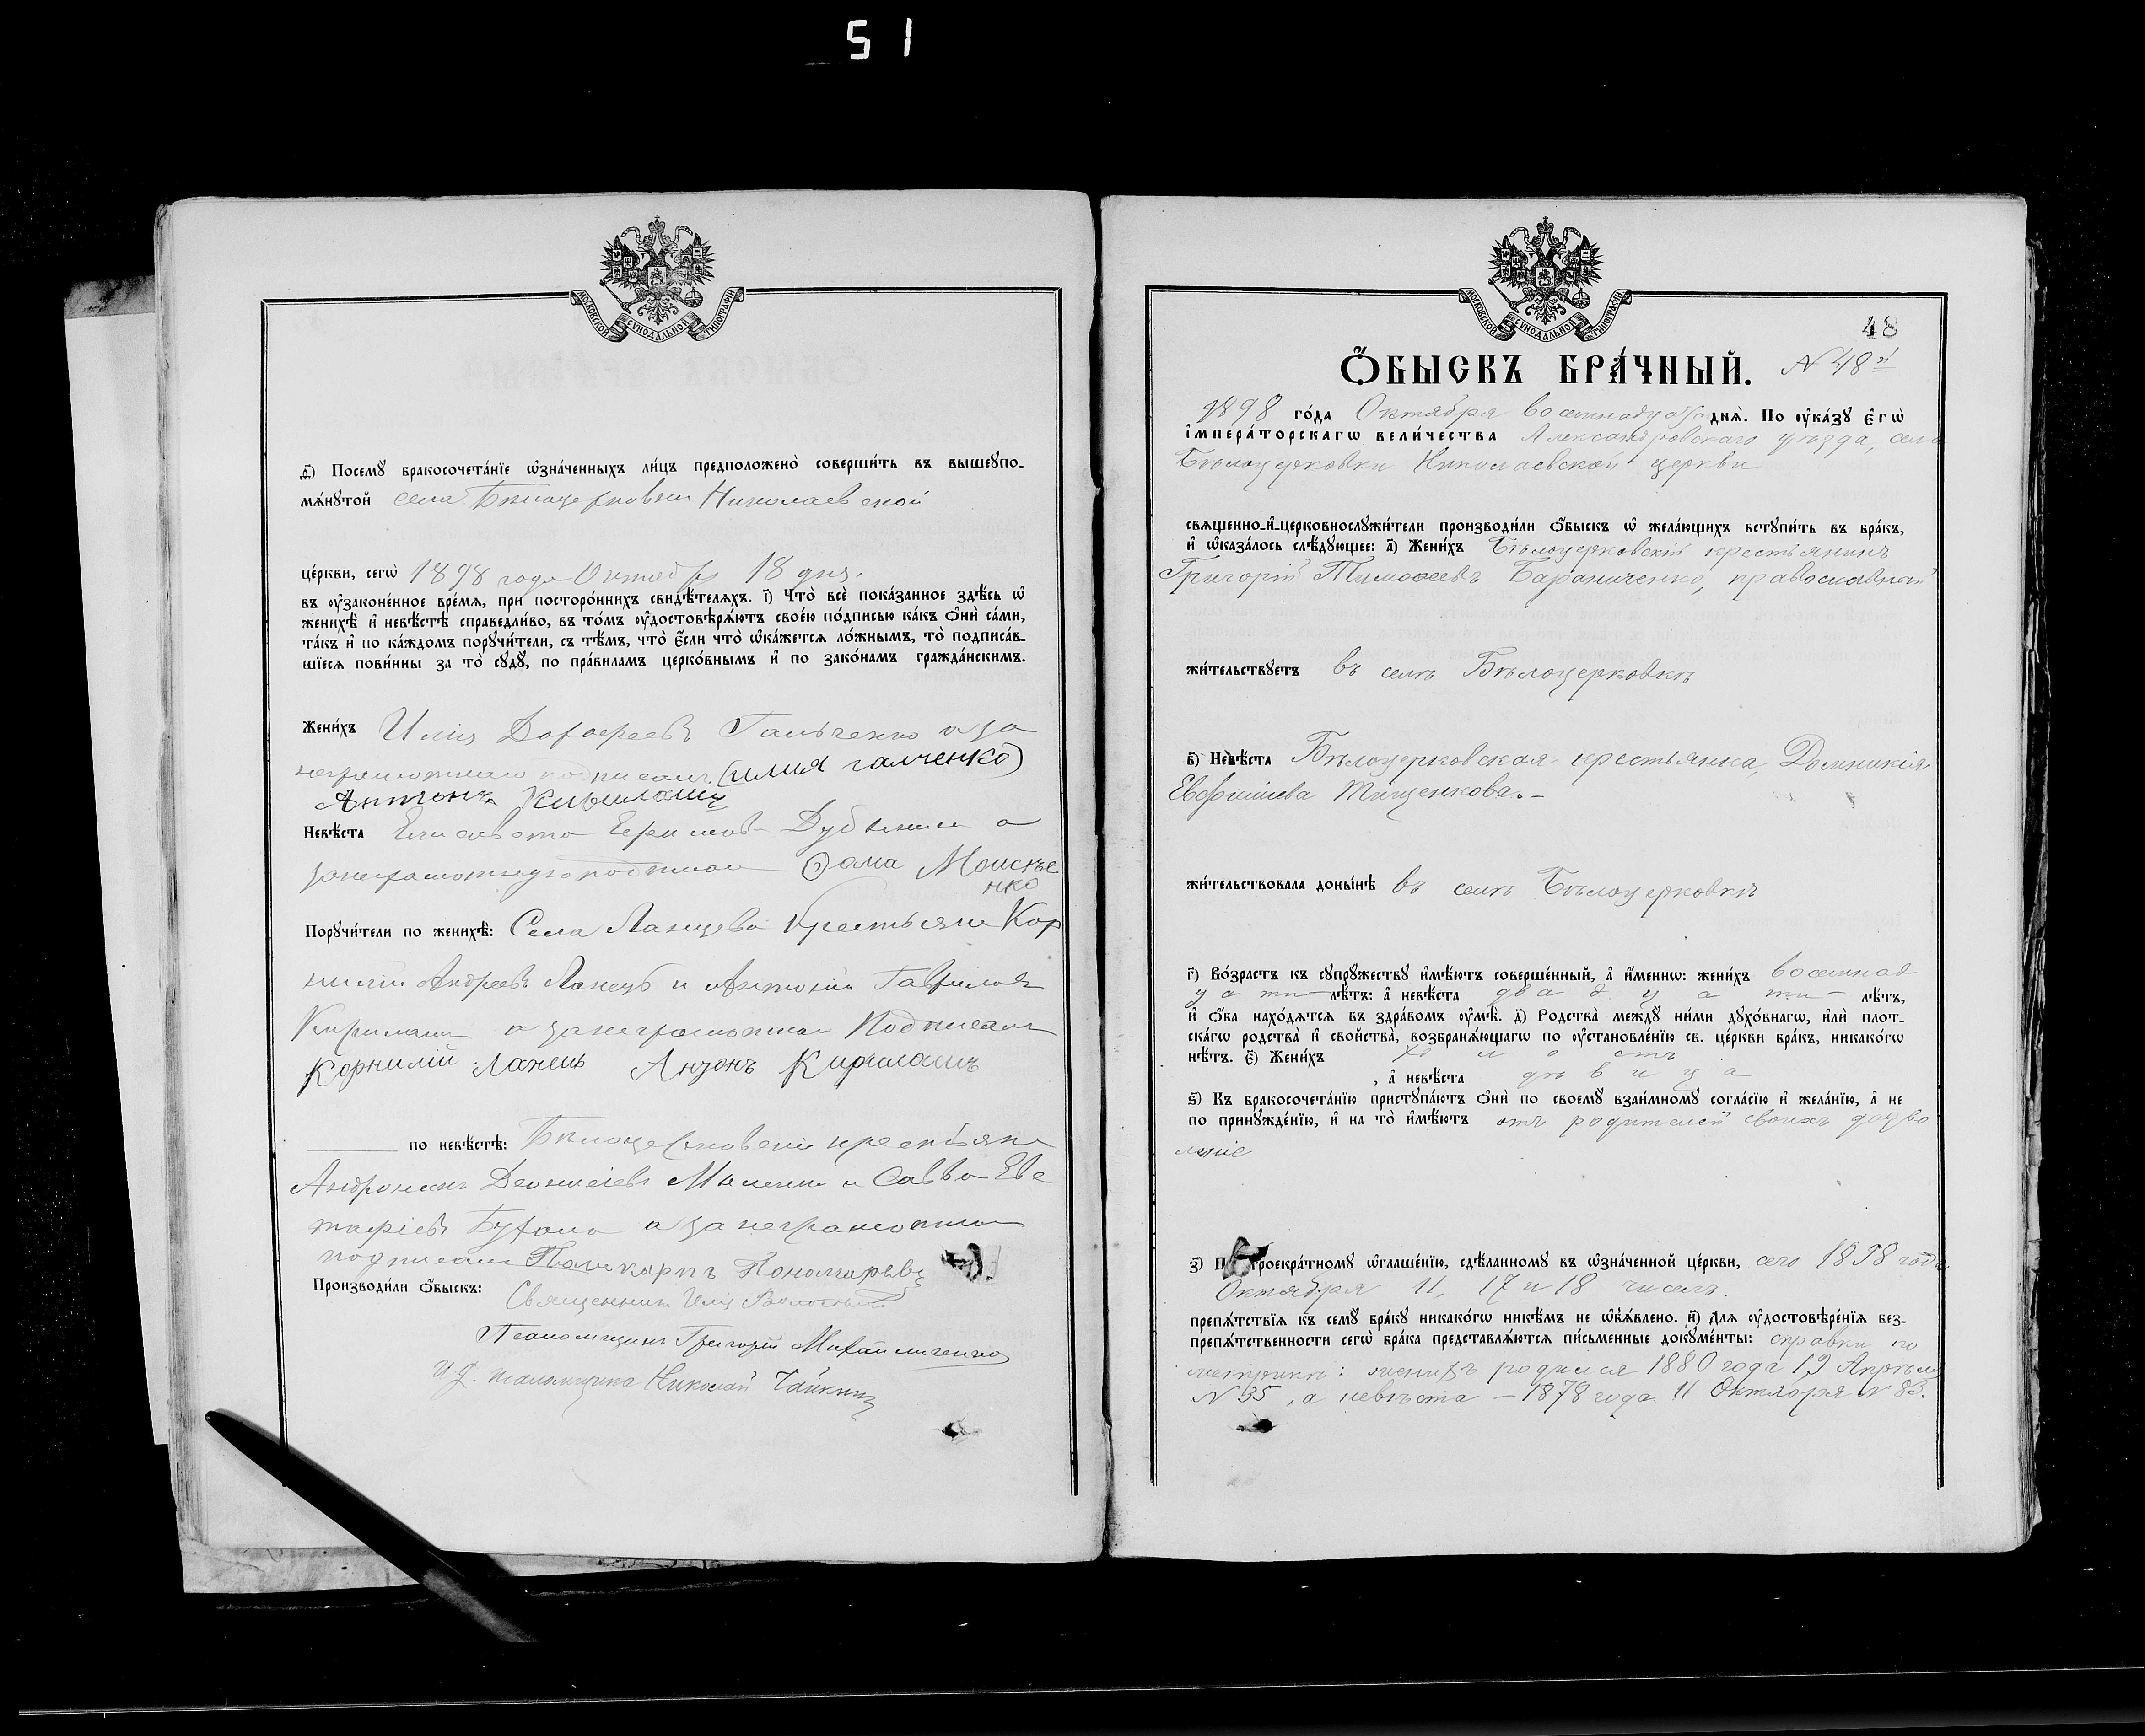 51
МОСКОВСКОЙ СѴНОДАЛЬНОЙ ТИПОГРАФІИ
ѳ҃) Посемꙋ̀ бракосочета́нїе ѡ҆зна́ченныхъ ли́цъ предположено̀ соверши́ть въ вышеꙋпо-
мѧ́нꙋтой села Бѣлоцерковки Николаевской
це́ркви, сегѡ̀ 1898 года Октября 18 дня.
въ ᲂу҆зако́ненное вре́мѧ, при посторо́ннихъ свидѣ́телѧхъ. і҃) Что̀ всѐ пока́занное здѣ́сь ѡ҆
женихѣ̀ и҆ невѣ́стѣ справедли́во, въ то́мъ ᲂу҆достовѣрѧ́ютъ свое́ю по́дписью ка́къ ѻ҆нѝ са́ми,
та́къ и҆ по ка́ждомъ порꙋчи́тели, съ тѣ́мъ, что̀ є҆́сли что̀ ѡ҆ка́жетсѧ ло́жнымъ, то̀ подписа́в-
шїесѧ пови́нны за то̀ сꙋдꙋ̀, по пра́виламъ церко́внымъ и҆ по зако́намъ гражда́нскимъ.
Жени́хъ Илія Дорофеевъ Гальченко а за
неграмотнаго подписалъ (илия галченко)
Антонъ Кирилашъ
Невѣ́ста Елисавета Дубинина а
за неграмотную подписал Ѳома Моисѣе
нко
Порꙋчи́тели по женихѣ̀: Села Ланцева Крестьяне Кор
нилій Андреевъ Ланецъ и Антоній Гавриловъ
Кирилаш а за неграмотных Подписалъ
Корнилій Ланець Антонъ Кирилашъ
по невѣ́стѣ: Бѣлоцерковскіе крестьяне
Андроникъ Деонисіевъ и Савва Евс
тафіевъ а за неграмотных
подписалъ Поликарпъ Пономаревъ
Производи́ли ѻ҆́быскъ: Священникъ Илія
Псаломщикъ Григорій Михайличенко
И д. псаломщика Николай Чайкин
МОСКОВСКОЙ СѴНОДАЛЬНОЙ ТИПОГРАФІИ
48
Ѻ҆́БЫСКЪ БРА́ЧНЫЙ. N 48й
1898 го́да Октября восемнадцатаго днѧ̀. По ᲂу҆ка́зꙋ є҆гѡ̀
і҆мпера́торскагѡ вели́чества Александровскаго уѣзда, села
Бѣлоцерковки Николаевской церкви
свѧщенно-и҆-церковнослꙋжи́тели производи́ли ѻ҆́быскъ ѡ҆ жела́ющихъ встꙋпи́ть въ бра́къ,
и҆ ѡ҆каза́лось слѣ́дꙋющее: а҃) Жени́хъ Бѣлоцерковскій крестьянинъ
Григорій Тимоѳеевъ Бараниченко, православный
жи́тельствꙋетъ въ селѣ Бѣлоцерковкѣ
в҃) Невѣ́ста Бѣлоцерковская крестьянка, Домникія
Евфиміева Тищенкова. –
жи́тельствовала доны́нѣ въ селѣ Бѣлоцерковкѣ
г҃) Во́зрастъ къ сꙋпрꙋ́жествꙋ и҆мѣ́ютъ соверше́нный, а҆ и҆́меннѡ: жени́хъ восемнад
цати лѣ́тъ: а҆ невѣ́ста двадцати – лѣ́тъ,
и҆ ѻ҆́ба нахо́дѧтсѧ въ здра́вомъ ᲂу҆мѣ̀. д҃) Родства̀ междꙋ̀ ни́ми дꙋхо́внагѡ, и҆лѝ плот-
ска́гѡ родства̀ и҆ сво́йства, возбранѧ́ющагѡ по ᲂу҆становле́нїю св. це́ркви бра́къ, никако́гѡ
нѣ́тъ. є҃) Жени́хъ холостъ
, а҆ невѣ́ста дѣвица
ѕ҃) Къ бракосочета́нїю пристꙋпа́ютъ ѻ҆нѝ по своемꙋ̀ взаи́мномꙋ согла́сїю и҆ жела́нїю, а҆ не
по принꙋжде́нїю, и҆ на то̀ и҆мѣ́ютъ отъ родителей своихъ дозво
леніе
з҃) По троекра́тномꙋ ѡ҆глаше́нїю, сдѣ́ланномꙋ въ ѡ҆зна́ченной це́ркви, сего 1898 года
Октября 11, 17 и 18 чиселъ.
препѧ́тствїѧ къ семꙋ̀ бра́кꙋ никако́гѡ никѣ́мъ не ѡ҆б̾ѧ́влено. и҃) Длѧ ᲂу҆достовѣре́нїѧ без-
препѧ́тственности сегѡ̀ бра́ка представлѧ́ютсѧ пи́сьменные докꙋме́нты: справки по
метрикѣ: женихъ родился 1880 года 19 Апрѣля
N 35, а невѣста – 1878 года 11 Октября N 83.